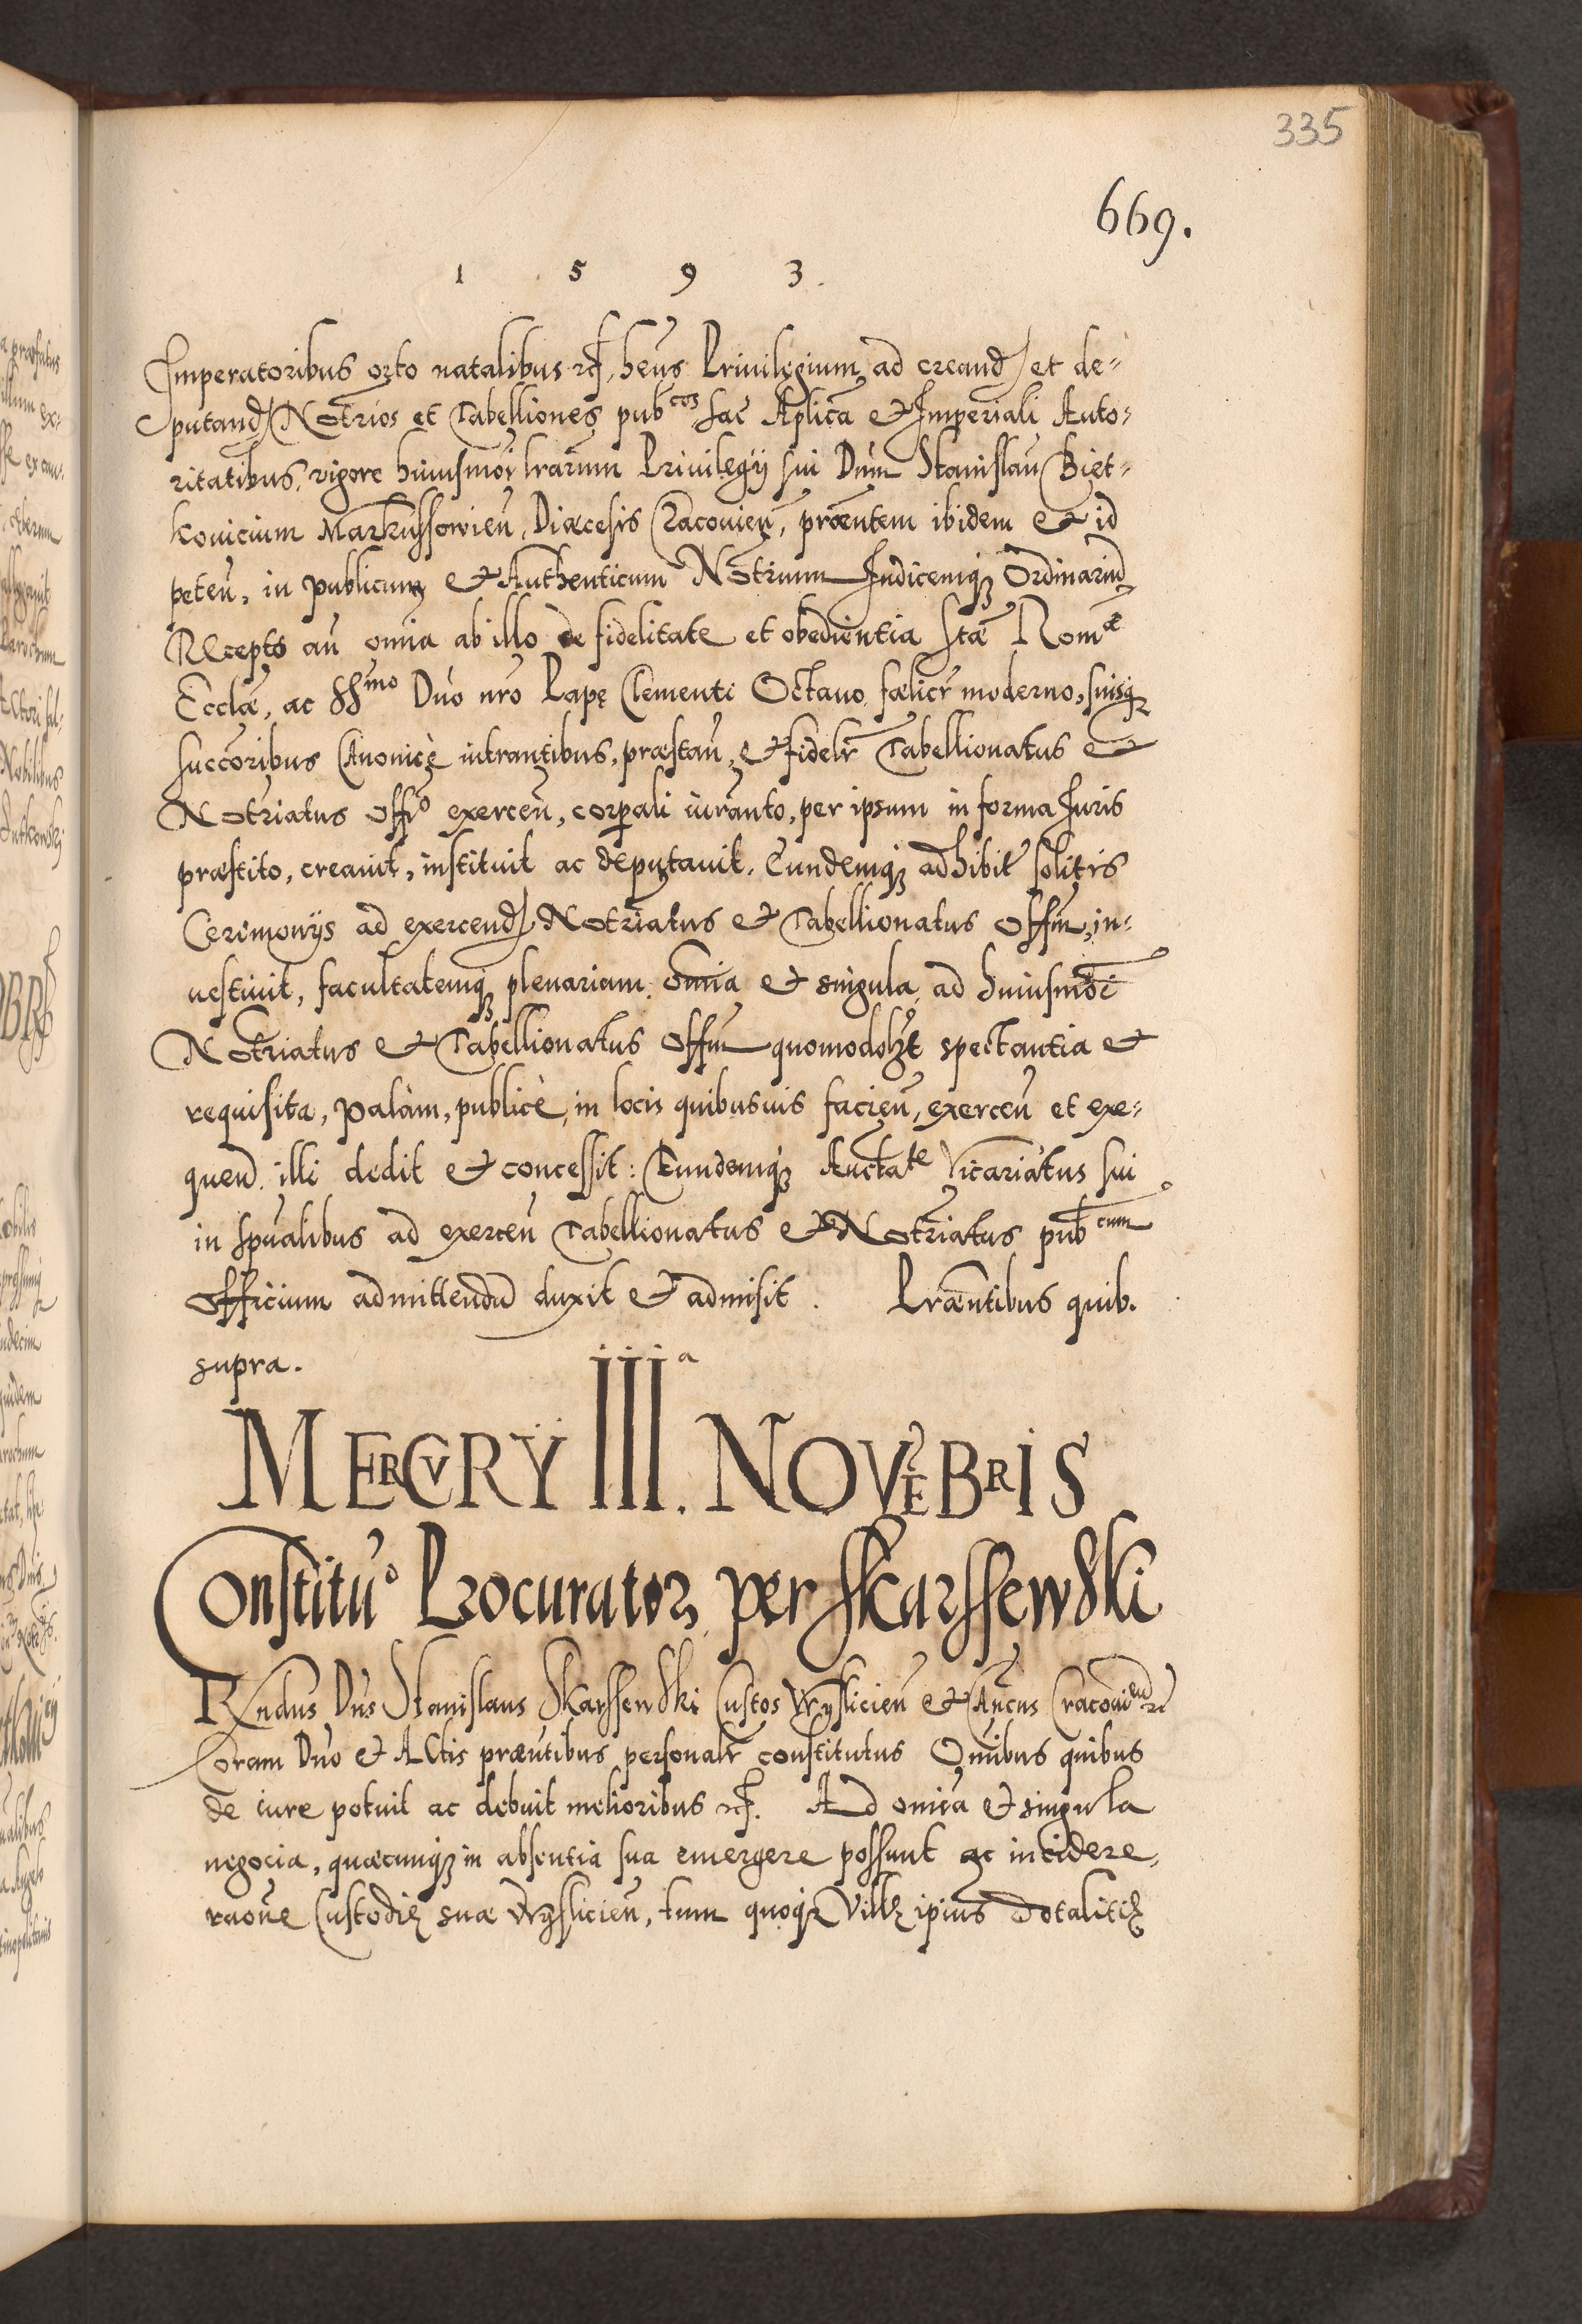 335
669.
1 5 9 3.
Imperatoribus orto natalibus etc, hēns Priuilegium ad creand et de-
putand Notrios et Tabelliones pub͞cos sac Aplica et Imperiali Auto-
ritatibus, vigore huiusmoi lrarum Priuilegij sui Dnm Stanislau Biet-
kouicium Markussowien, Diæcesis Cracouien, præntem ibidem et id
peten, in publicum et Authenticum Notrium Iudicemq; Ordinariū
Receptō aū omīa ab illo de fidelitate et obedientia stæ Romæ
Ecclæ, ac SSmo Dno nro Papę Clementi Octauo fælicr moderno, suisq;
succoribus Canonicè intrantibus, præstan, et fidelr Tabellionatus et
Notriatus offo exercen, corpali iuranto, per ipsum in forma Iuris
præstito, creauit, instituit ac deputauit. Eundemq; adhibit solitis
Cerimonijs ad exercend Notriatus et Tabellionatus offm, in-
uestiuit, facultatemq; plenariam omīa et singula ad huiusmoi
Notriatus et Tabellionatus offm quomodolzt spectantia et
requisita, palàm, publicè, in locis quibusuis facien, exercen et exe-
quen illi dedit et concessit: Eundemq; Auctate Vicariatus sui
in spualibus ad exercen Tabellionatus et Notriatus pub͞cum
officium admittendū duxit et admisit. Præntibus quib.
supra.
MERCVRY IIIa. NOVEBRIS
Constituo Procurator per Skarssewski
Rndus Dns Stanislaus Skarssewski Custos Wyslicien et Cancus Cracouien etc
Coram Dno et Actis præntibus personalr constitutus Omībus quibus
de iure potuit ac debuit melioribus etc. Ad omīa et singula
negocia, quæcunq; in absentia sua emergere possunt ac incidere,
raone Custodię suæ Wyslicien, tum quoq; Villę ipius dotalitię